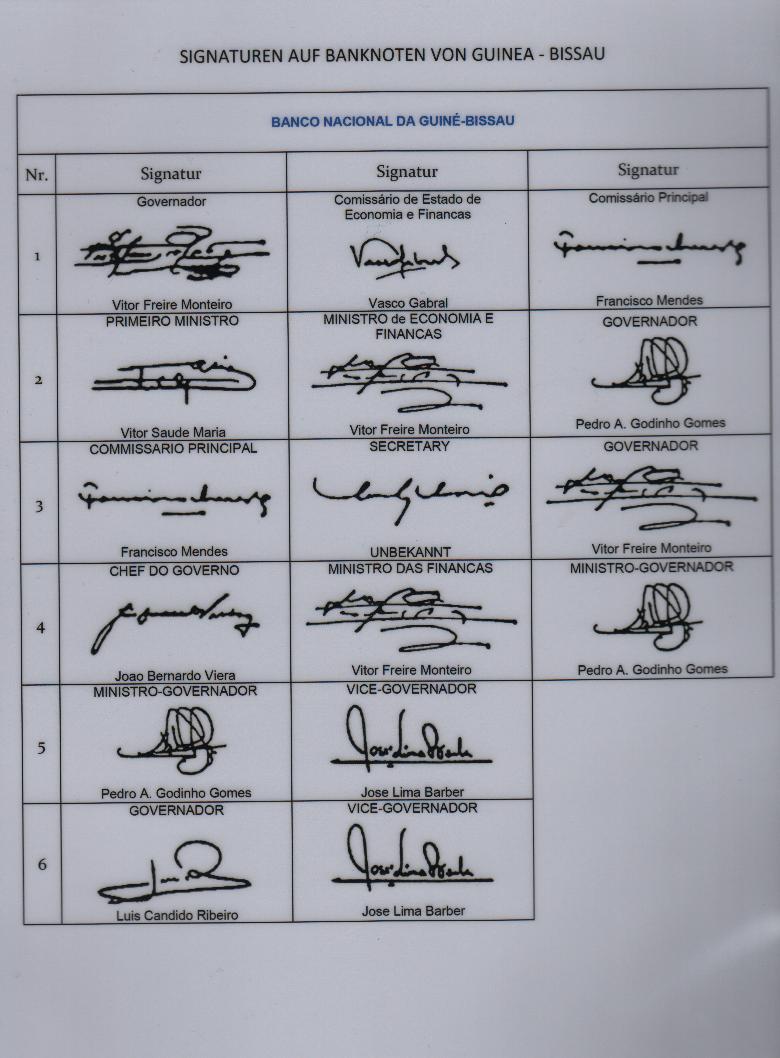 SIGNATUREN AUF BANKNOTEN VON GUINEA - BISSAU
BANCO NACIONAL DA GUINÉ-BISSAU
Nr. Signatur Signatur Signatur
Governador
Comissário de Estado de
Economia e Financas
Comissário Principal
1
Vitor Freire Monteiro
Vasco Gabral
Francisco Mendes
PRIMEIRO MINISTRO
MINISTRO de ECONOMIA E
FINANCAS
GOVERNADOR
2
Vitor Saude Maria
Vitor Freire Monteiro
Pedro A. Godinho Gomes
COMMISSARIO PRINCIPAL
SECRETARY
GOVERNADOR
3
Francisco Mendes
UNBEKANNT
Vitor Freire Monteiro
CHEF DO GOVERNO
MINISTRO DAS FINANCAS
MINISTRO-GOVERNADOR
4
Joao Bernardo Viera
Vitor Freire Monteiro
Pedro A. Godinho Gomes
MINISTRO-GOVERNADOR
VICE-GOVERNADOR
5
Pedro A. Godinho Gomes
Jose Lima Barber
GOVERNADOR
VICE-GOVERNADOR
6
Luis Candido Ribeiro
Jose Lima Barber